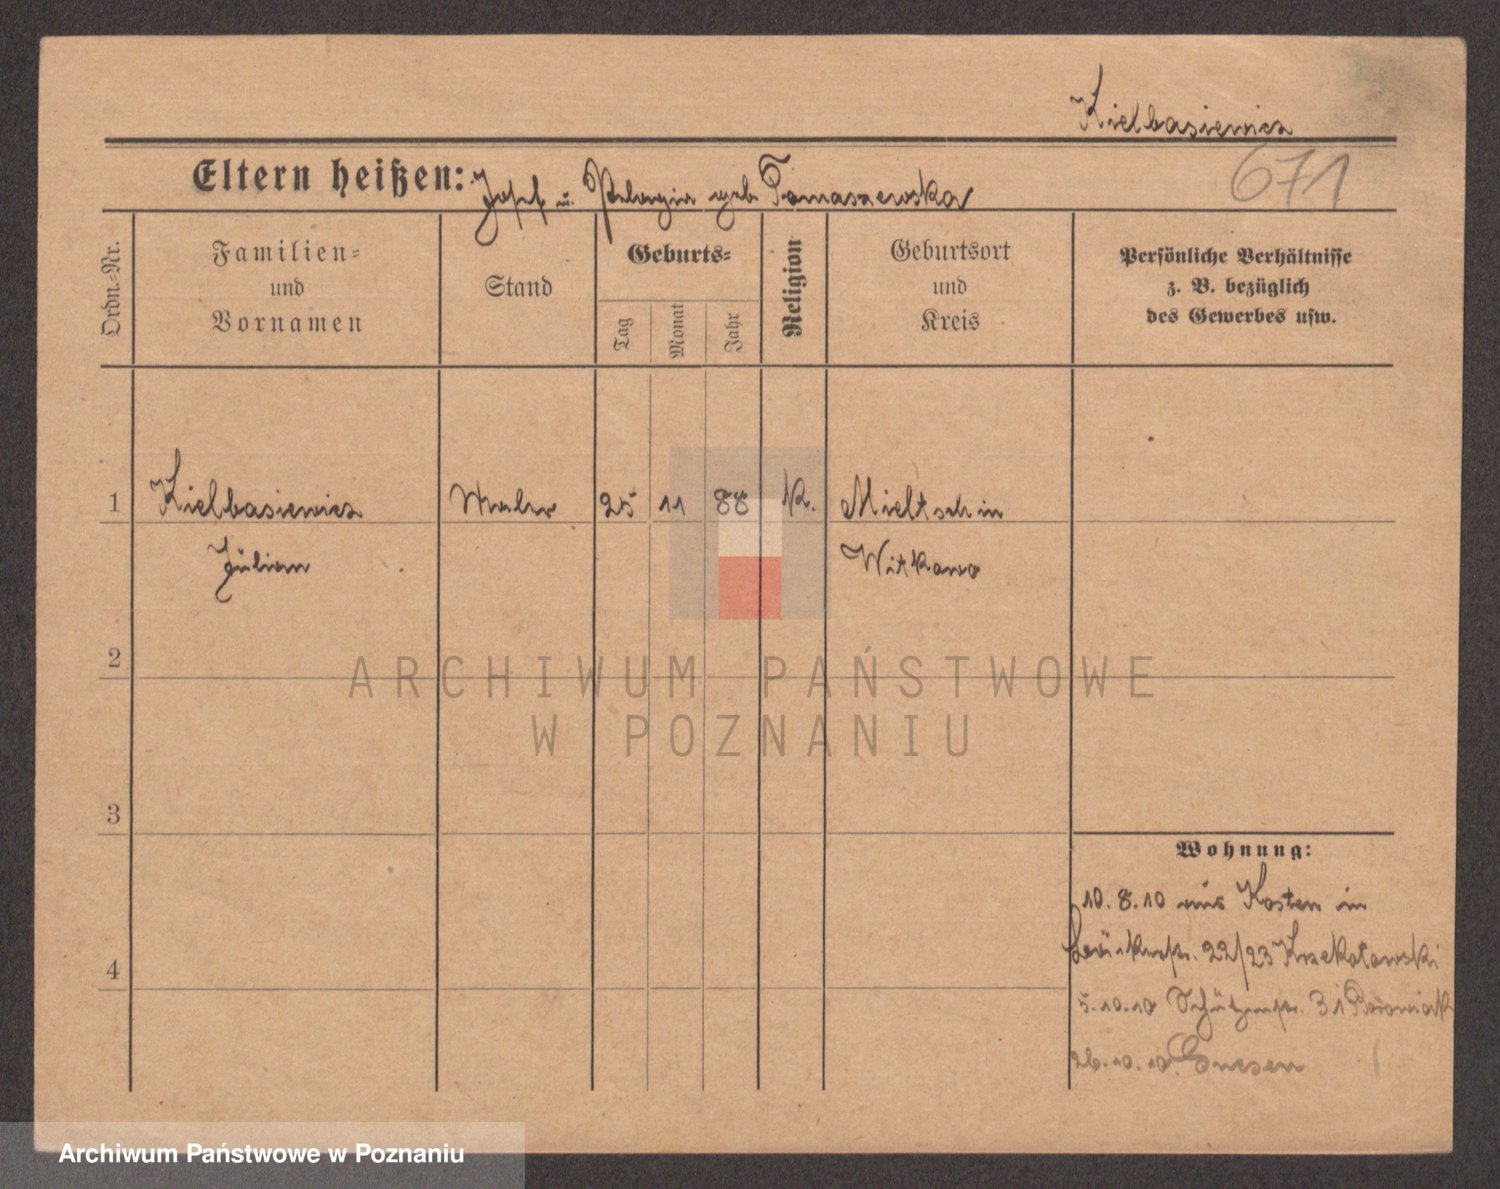 Kielbasiewicz
671
Eltern heißen: Josef u. Pelagia geb Tomaszewska
Ordn.-Nr.
Familien-
und
Vornamen
Stand
Geburts-
Tag
Monat
Jahr
Religion
Geburtsort
und
Kreis
Persönliche Verhältnisse
z. B. bezüglich
des Gewerbes usw.
1 Kielbasiewicz Maler 25 11 88 K. Mieltschin
Julian Witkowo
2
3
4
Wohnung:
10.8.10 aus Kosten in
22/23 Krzekotowski
5.10.10 Schützenstr. 31 Borowiak
26.10.10 Gnesen
ARCHIWUM PAŃSTWOWE
W POZNANIU
Archiwum Państwowe w Poznaniu